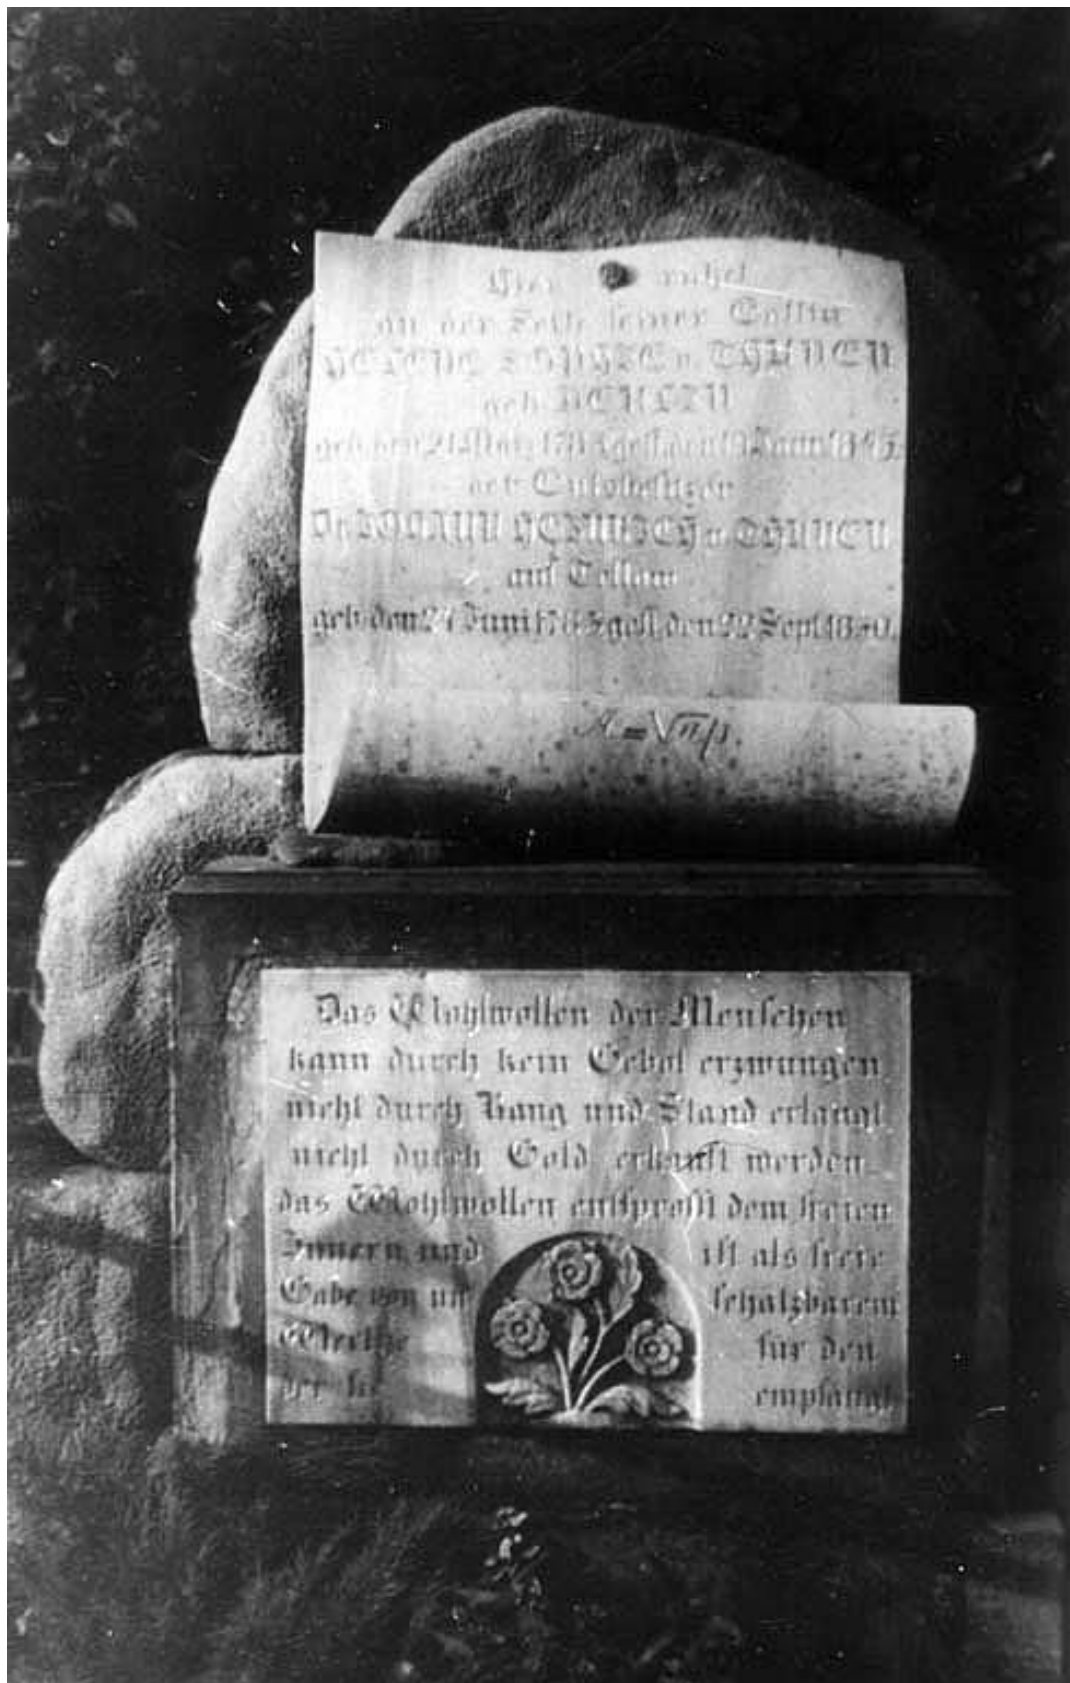 Hier ruhet
an der Seite seiner Gattin
HELENE SOPHIE v. THÜNEN
geb. BERLIN
geb. den 21 März 1785 gest. den 19 Juni 1845.
der Gutsbesitzer
Dr. JOHANN HEINRICH v. THÜNEN
auf Tellow
geb. den 24 Juni 1783 gest. den 22 Sept. 1850.
A=√ap
Das Wohlwollen der Menschen
kann durch kein Gebot erzwungen
nicht durch Rang und Stand erlangt
nicht durch Gold erkauft werden
das Wohlwollen entsprosst dem freien
Innern und ist als freie
Gabe von un schätzbarem
Werthe für den
der sie empfängt